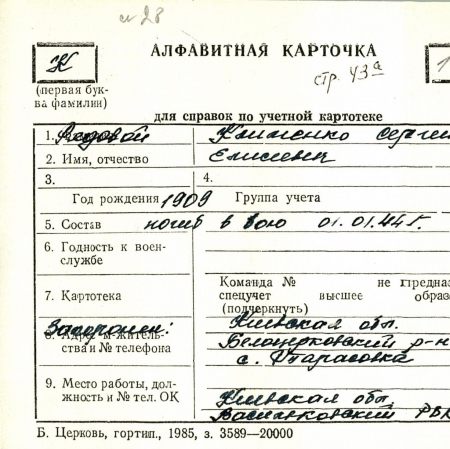 и 28
К
АЛФАВИТНАЯ КАРТОЧКА
1
(первая бук-
ва фамилии)
стр. 43а
для справок по учетной картотеке
1. Рядовой Клименко Сергей
2. Имя, отчество Елисеевич
3. 4.
Год рождения 1909 Группа учета
5. Состав погиб в бою 01.01.44г.
6. Годность к воен-
службе
7. Картотека
Команда № не предназ
спецучет высшее образо
(подчеркнуть)
Захоронен: Киевская обл.
8. Адрес м-житель-
ства и № телефона
Белоцерковский р-н
с. Тарасовка
9. Место работы, дол-
жность и № тел. ОК
Киевская обл.
Васильковский РВК
Б. Церковь, гортип., 1985, з. 3589—20000